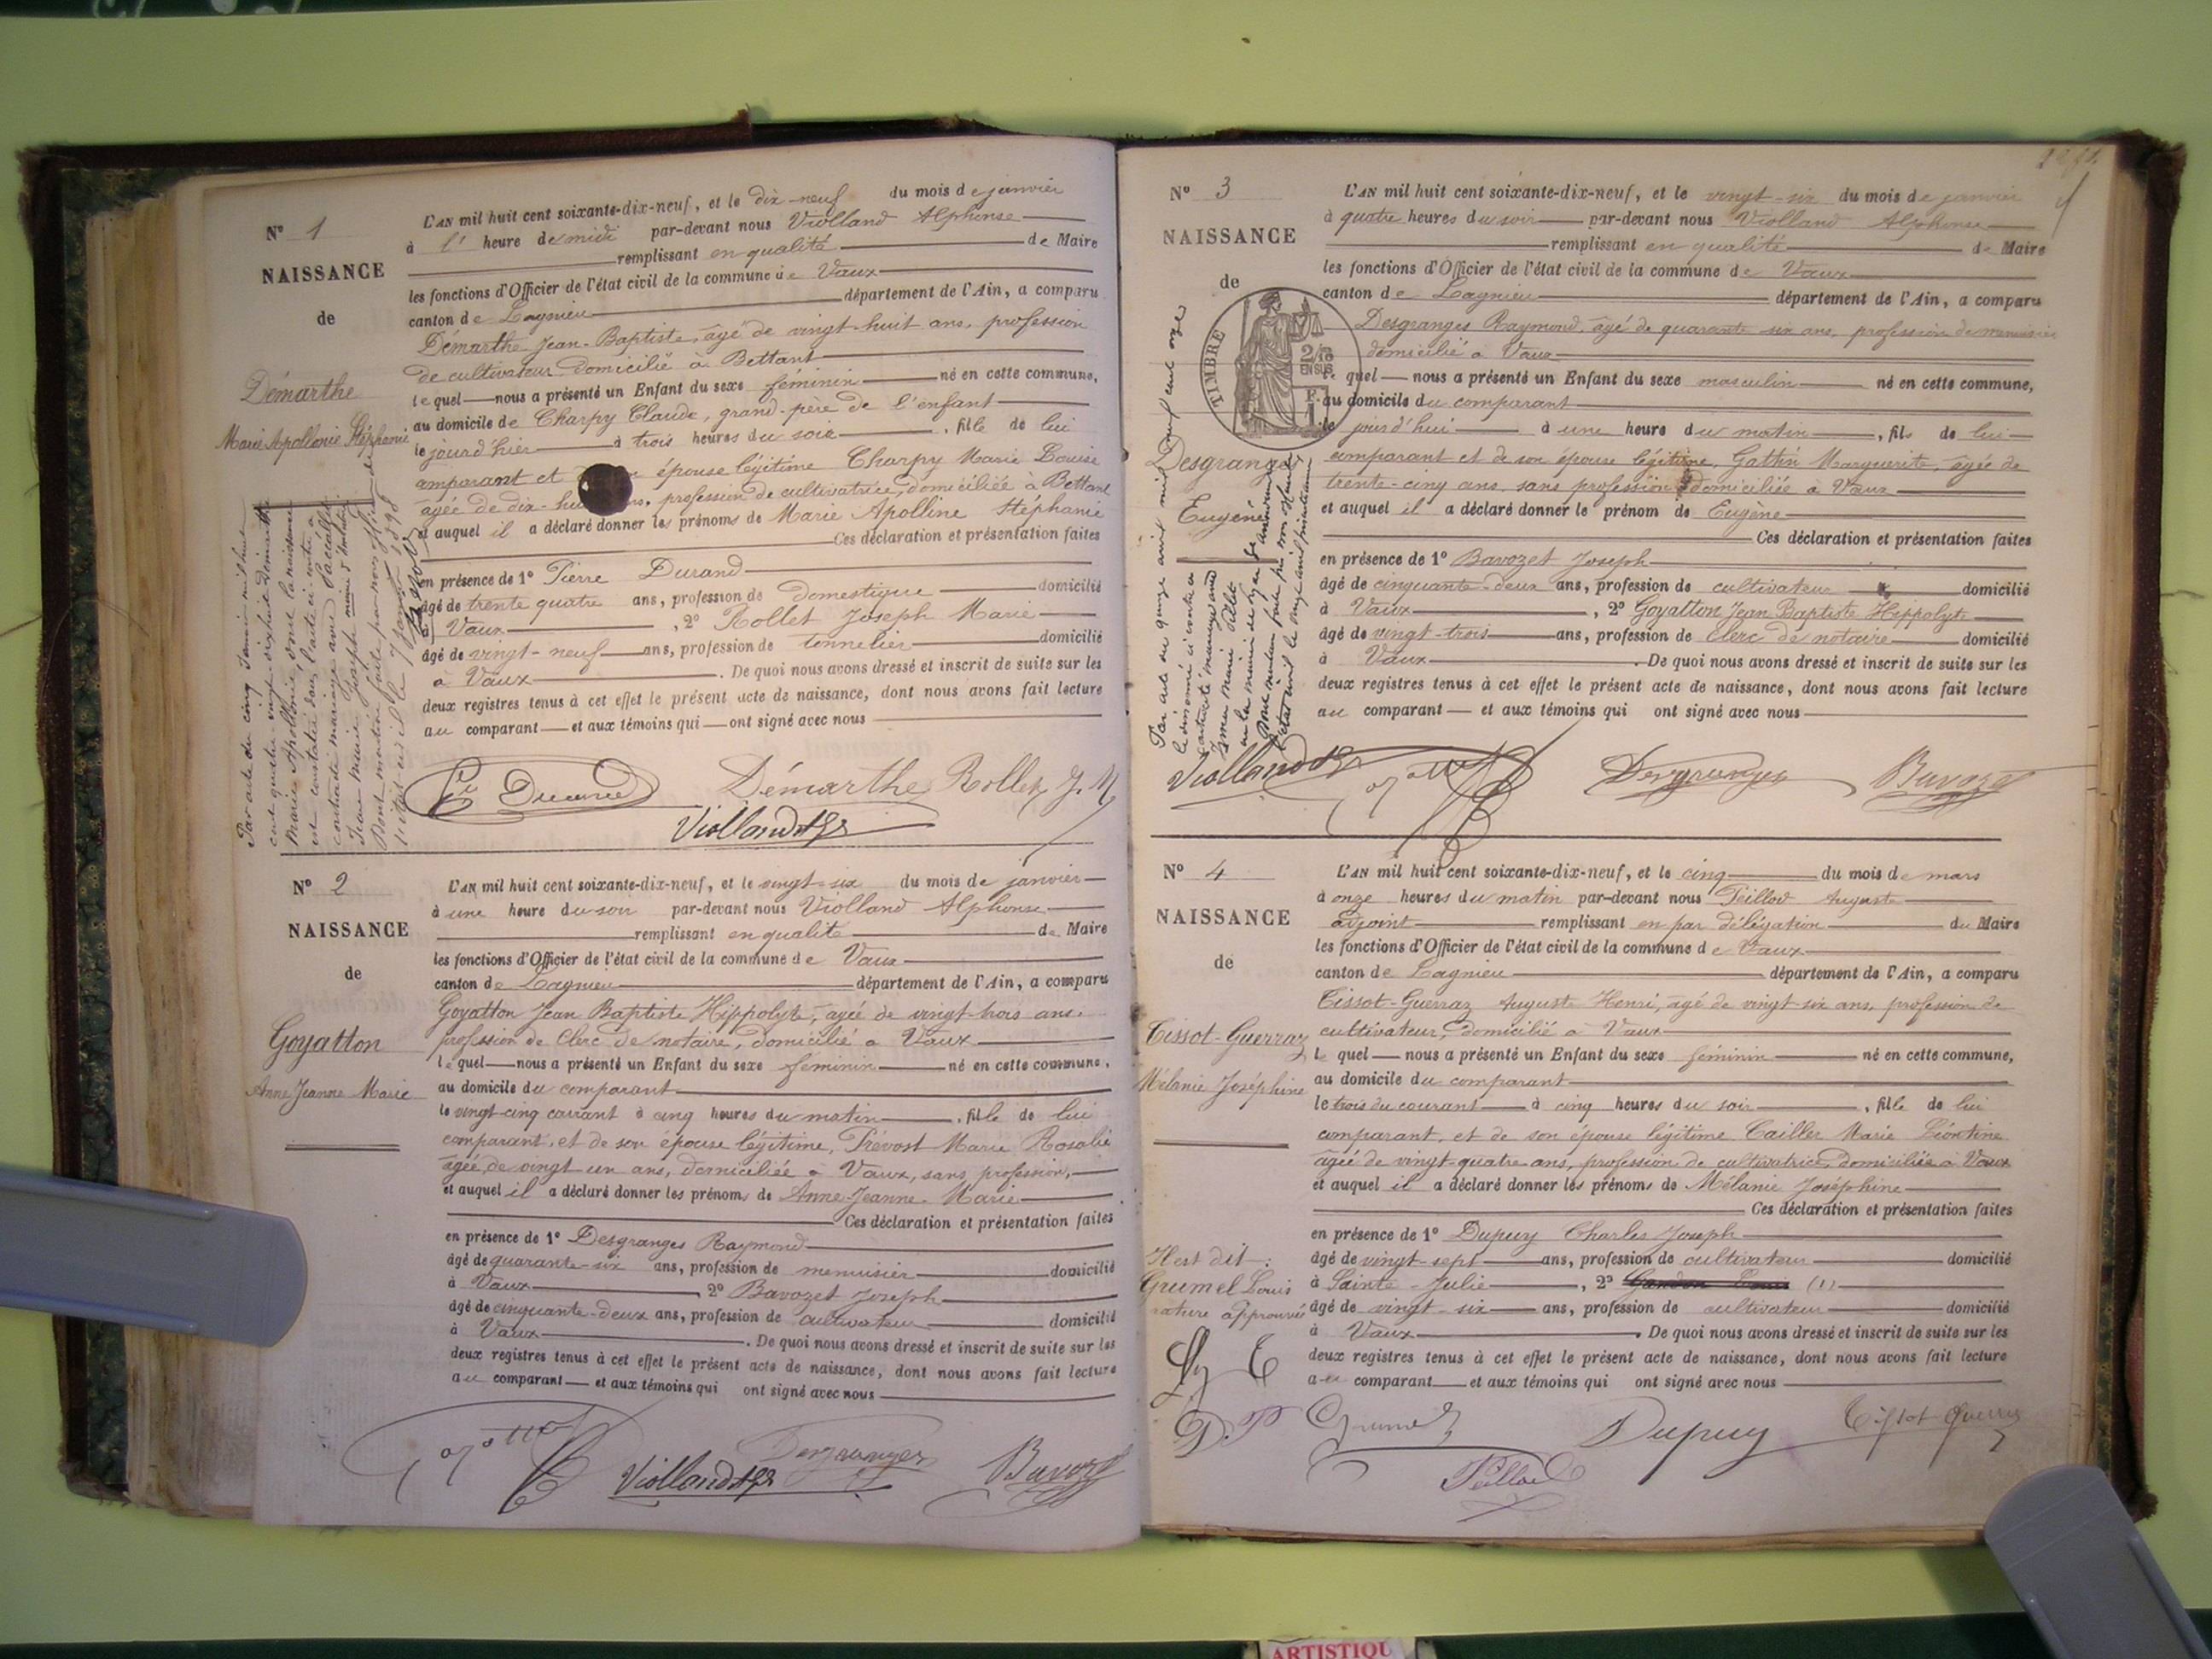 N° 1
NAISSANCE
de
Démarthe
Marie Apollonie Stéphanie
L'AN mil huit cent soixante-dix-neuf, et le dix-neuf du mois de janvier
à l' heure de midi par-devant nous Violland Alphonse
remplissant en qualité de Maire
les fonctions d'Officier de l'état civil de la commune de Vaux
canton de Lagnieu département de l'Ain, a comparu
Démarthe Jean-Baptiste, âgé de vingt-huit ans, profession
de cultivateur domicilié à Bettant
lequel nous a présenté un Enfant du sexe féminin né en cette commune,
au domicile de Charpy Claude, grand-père de l'enfant
le jourd'hier à trois heures du soir, fille de lui
comparant et épouse légitime Charpy Marie Louise
âgée de dix-huit ans, profession de cultivatrice, domiciliée à Bettant
et auquel il a déclaré donner les prénoms de Marie Apolline Stéphanie
Ces déclaration et présentation faites
en présence de 1° Pierre Durand
âgé de trente quatre ans, profession de domestique domicilié
à Vaux, 2° Rollet Joseph Marie
âgé de vingt-neuf ans, profession de tonnelier domicilié
à Vaux. De quoi nous avons dressé et inscrit de suite sur les
deux registres tenus à cet effet le présent acte de naissance, dont nous avons fait lecture
au comparant et aux témoins qui ont signé avec nous
Par acte du cinq Janvier mil huit
cent quatre-vingt-dix-huit Démarthe
Marie Apollonie, dont la naissance
est constatée dans l'acte ci-contre a
contracté mariage avec
Jean Marie Joseph
Dont mention faite par nous
l'état-civil le 7 Janvier 1898
Durand Démarthe Rollet J. M
Violland
N° 2
NAISSANCE
de
Goyatton
Anne Jeanne Marie
L'AN mil huit cent soixante-dix-neuf, et le vingt-six du mois de janvier
à une heure du soir par-devant nous Violland Alphonse
remplissant en qualité de Maire
les fonctions d'Officier de l'état civil de la commune de Vaux
canton de Lagnieu département de l'Ain, a comparu
Goyatton Jean Baptiste Hippolyte, âgée de vingt-trois ans,
profession de clerc de notaire, domicilié à Vaux
lequel nous a présenté un Enfant du sexe féminin né en cette commune,
au domicile du comparant
le vingt-cinq courant à cinq heures du matin, fille de lui
comparant, et de son épouse légitime, Prévost Marie Rosalie
âgée de vingt un ans, domiciliée à Vaux, sans profession,
et auquel il a déclaré donner les prénoms de Anne Jeanne Marie
Ces déclaration et présentation faites
en présence de 1° Desgranges Raymond
âgé de quarante-six ans, profession de menuisier domicilié
à Vaux 2° Bavozet Joseph
âgé de cinquante-deux ans, profession de cultivateur domicilié
à Vaux. De quoi nous avons dressé et inscrit de suite sur les
deux registres tenus à cet effet le présent acte de naissance, dont nous avons fait lecture
au comparant et aux témoins qui ont signé avec nous
Violland Desgranges Bavozet
N° 3
NAISSANCE
de
TIMBRE
2/10
EN SUS
Desgranges
Eugène
L'AN mil huit cent soixante-dix-neuf, et le vingt-six du mois de janvier
à quatre heures du soir par-devant nous Violland Alphonse
remplissant en qualité de Maire
les fonctions d'Officier de l'état civil de la commune de Vaux
canton de Lagnieu département de l'Ain, a comparu
Desgranges Raymond, âgé de quarante six ans, profession de menuisier
domicilié à Vaux
le quel nous a présenté un Enfant du sexe masculin né en cette commune,
au domicile du comparant
le jourd'hui à une heure du matin, fils de lui
comparant et de son épouse légitime, Gattin Marguerite, âgée de
trente-cinq ans, sans profession, domiciliée à Vaux
et auquel il a déclaré donner le prénom de Eugène
Ces déclaration et présentation faites
en présence de 1° Bavozet Joseph
âgé de cinquante-deux ans, profession de cultivateur domicilié
à Vaux, 2° Goyatton Jean Baptiste Hippolyte
âgé de vingt-trois ans, profession de clerc de notaire domicilié
à Vaux. De quoi nous avons dressé et inscrit de suite sur les
deux registres tenus à cet effet le présent acte de naissance, dont nous avons fait lecture
au comparant et aux témoins qui ont signé avec nous
Par acte du quinze avril mil neuf cent onze
le dénommé ci-contre a
contracté mariage avec
Violland Desgranges Bavozet
N° 4
NAISSANCE
de
Tissot-Guerraz
Mélanie Joséphine
L'AN mil huit cent soixante-dix-neuf, et le cinq du mois de mars
à onze heures du matin par-devant nous Peilloud Auguste
adjoint remplissant en par délégation du Maire
les fonctions d'Officier de l'état civil de la commune de Vaux
canton de Lagnieu département de l'Ain, a comparu
Tissot-Guerraz Auguste Henri, âgé de vingt-six ans, profession de
cultivateur, domicilié à Vaux
le quel nous a présenté un Enfant du sexe féminin né en cette commune,
au domicile du comparant
le trois du courant à cinq heures du soir, fille de lui
comparant, et de son épouse légitime Cailler Marie Léontine
âgée de vingt-quatre ans, profession de cultivatrice, domiciliée à Vaux
et auquel il a déclaré donner les prénoms de Mélanie Joséphine
Ces déclaration et présentation faites
en présence de 1° Dupuy Charles Joseph
âgé de vingt-sept ans, profession de cultivateur domicilié
à Sainte-Julie, 2° (1)
âgé de vingt-six ans, profession de cultivateur domicilié
à Vaux. De quoi nous avons dressé et inscrit de suite sur les
deux registres tenus à cet effet le présent acte de naissance, dont nous avons fait lecture
au comparant et aux témoins qui ont signé avec nous
Il est dit :
Grumel Louis
rature approuvée
Grumel Dupuy Tissot Guerraz
Peilloud
ARTISTIQU